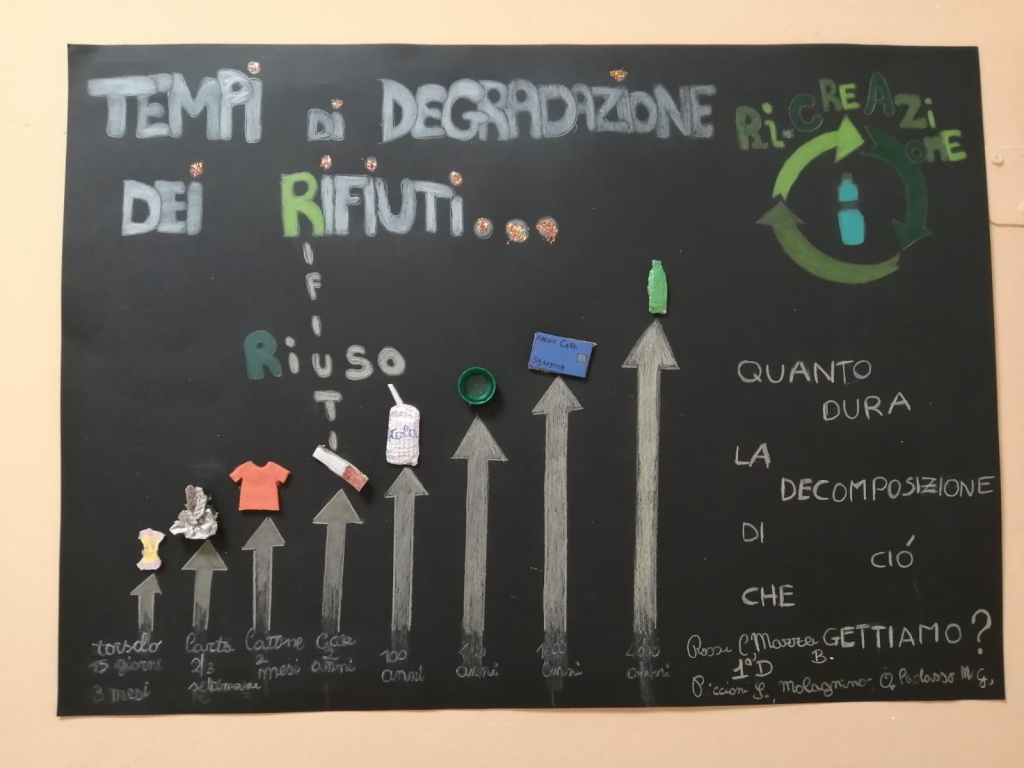 TEMPI DI DEGRADAZIONE
DEI RIFIUTI...
RI-CREAZI
ONE
RIFIUTI
RIUSO
Cola
QUANTO
DURA
LA
DECOMPOSIZIONE
DI
CIÓ
CHE
GETTIAMO?
torsolo
15 giorni
3 mesi
Carta
2/3
settimane
Cotone
2
mesi
anni
100
anni
anni
anni
anni
Rossi C. Marra B.
1ªD
Piccioni S. Molagnino